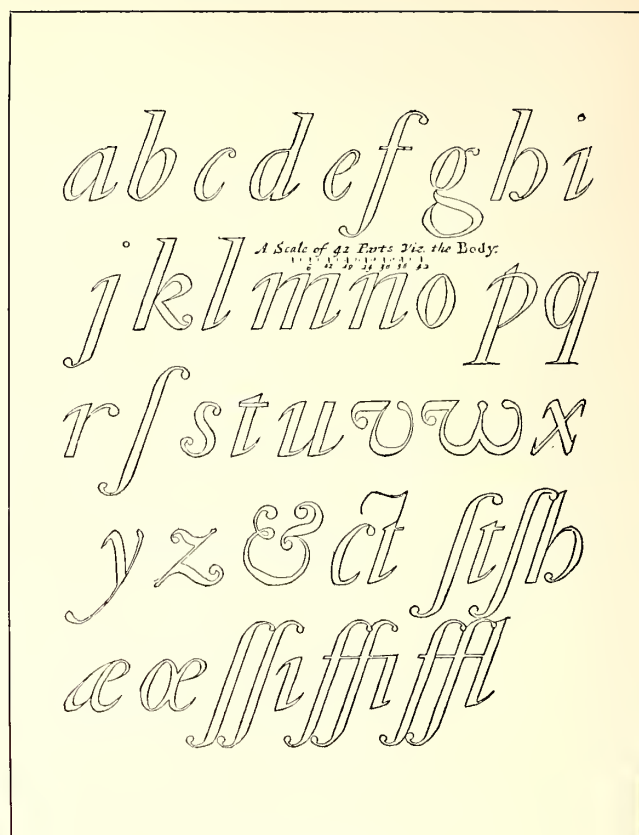 a b c d e f g h i
A Scale of 42 Parts Viz. the Body.
6 12 19 24 30 36 42
j k l m n o p q
r ſ s t u v w x
y z & ct ſt ſh
æ œ ſſi ffi ffl